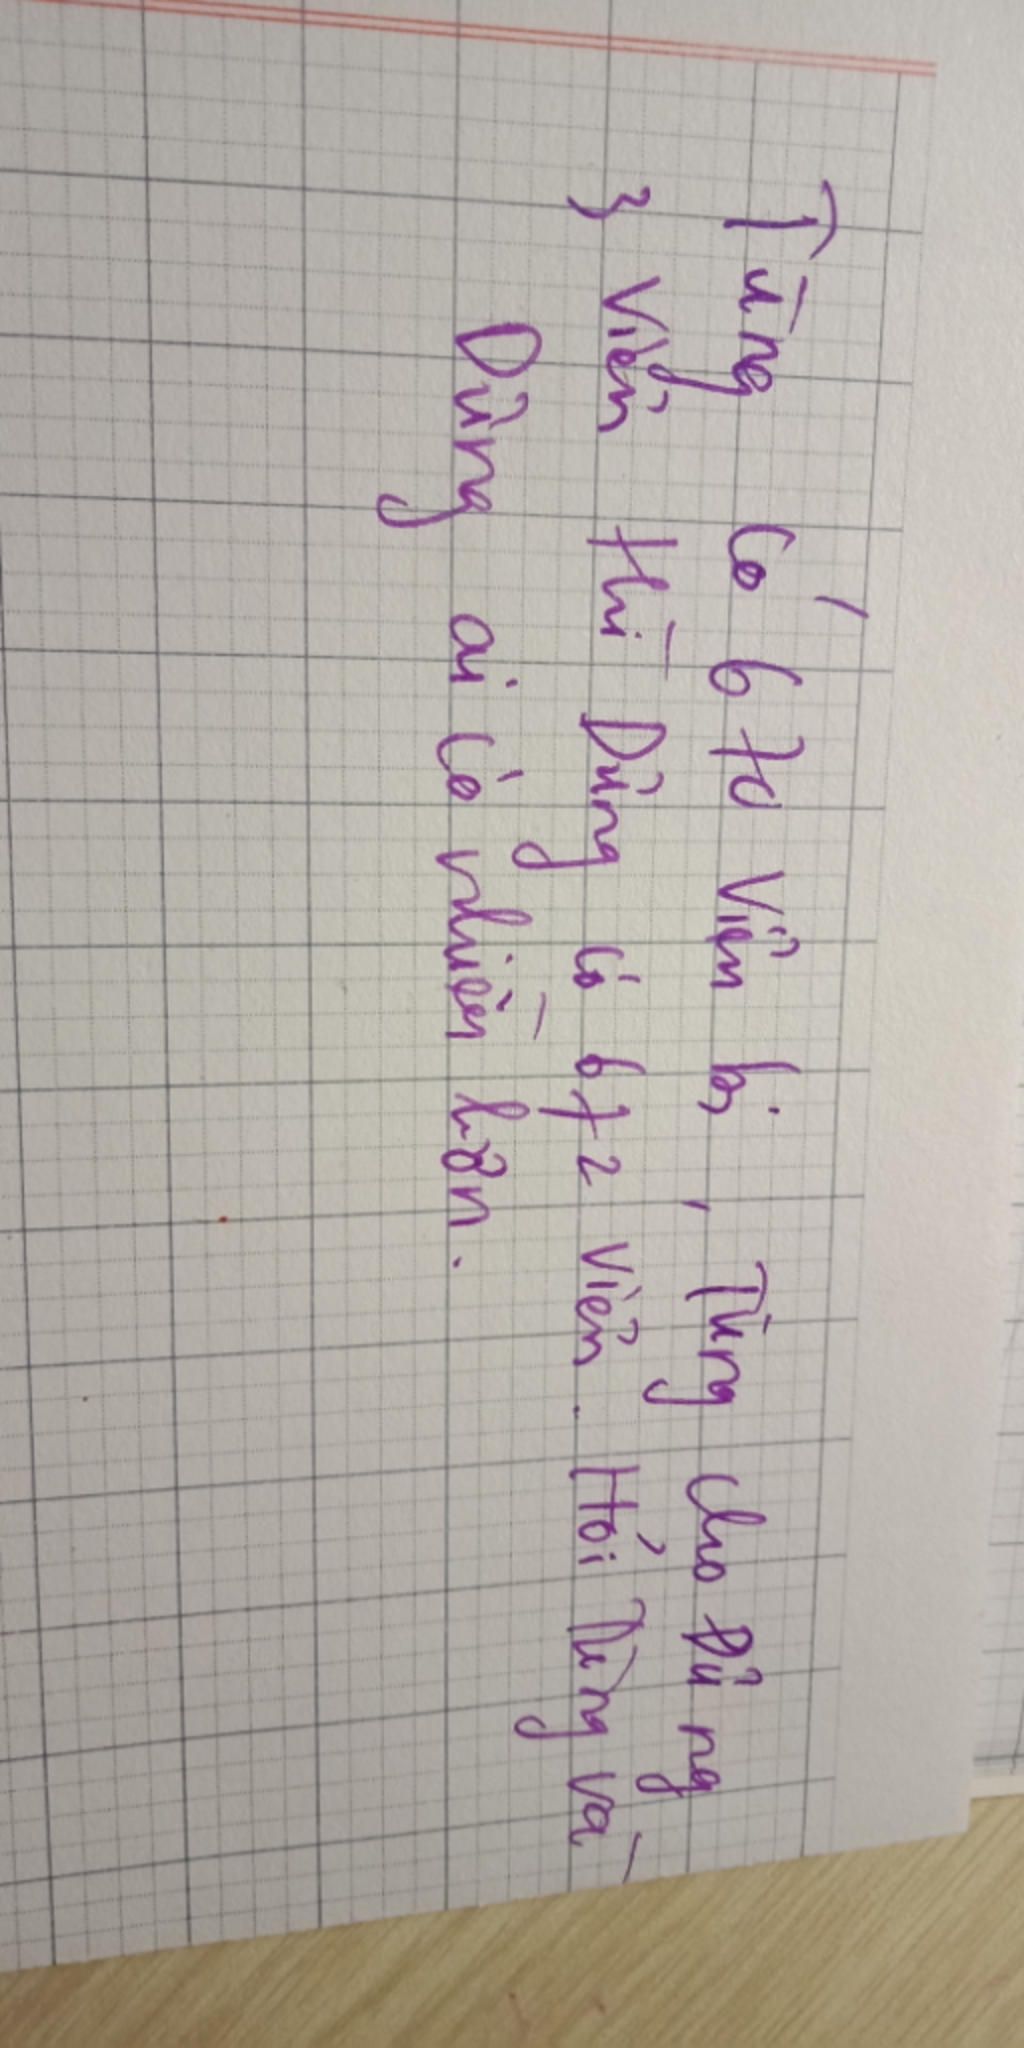 Tùng có 670 viên bi, Tùng cho Dũng
3 viên thì Dũng có 672 viên. Hỏi Tùng và
Dũng ai có nhiều hơn.